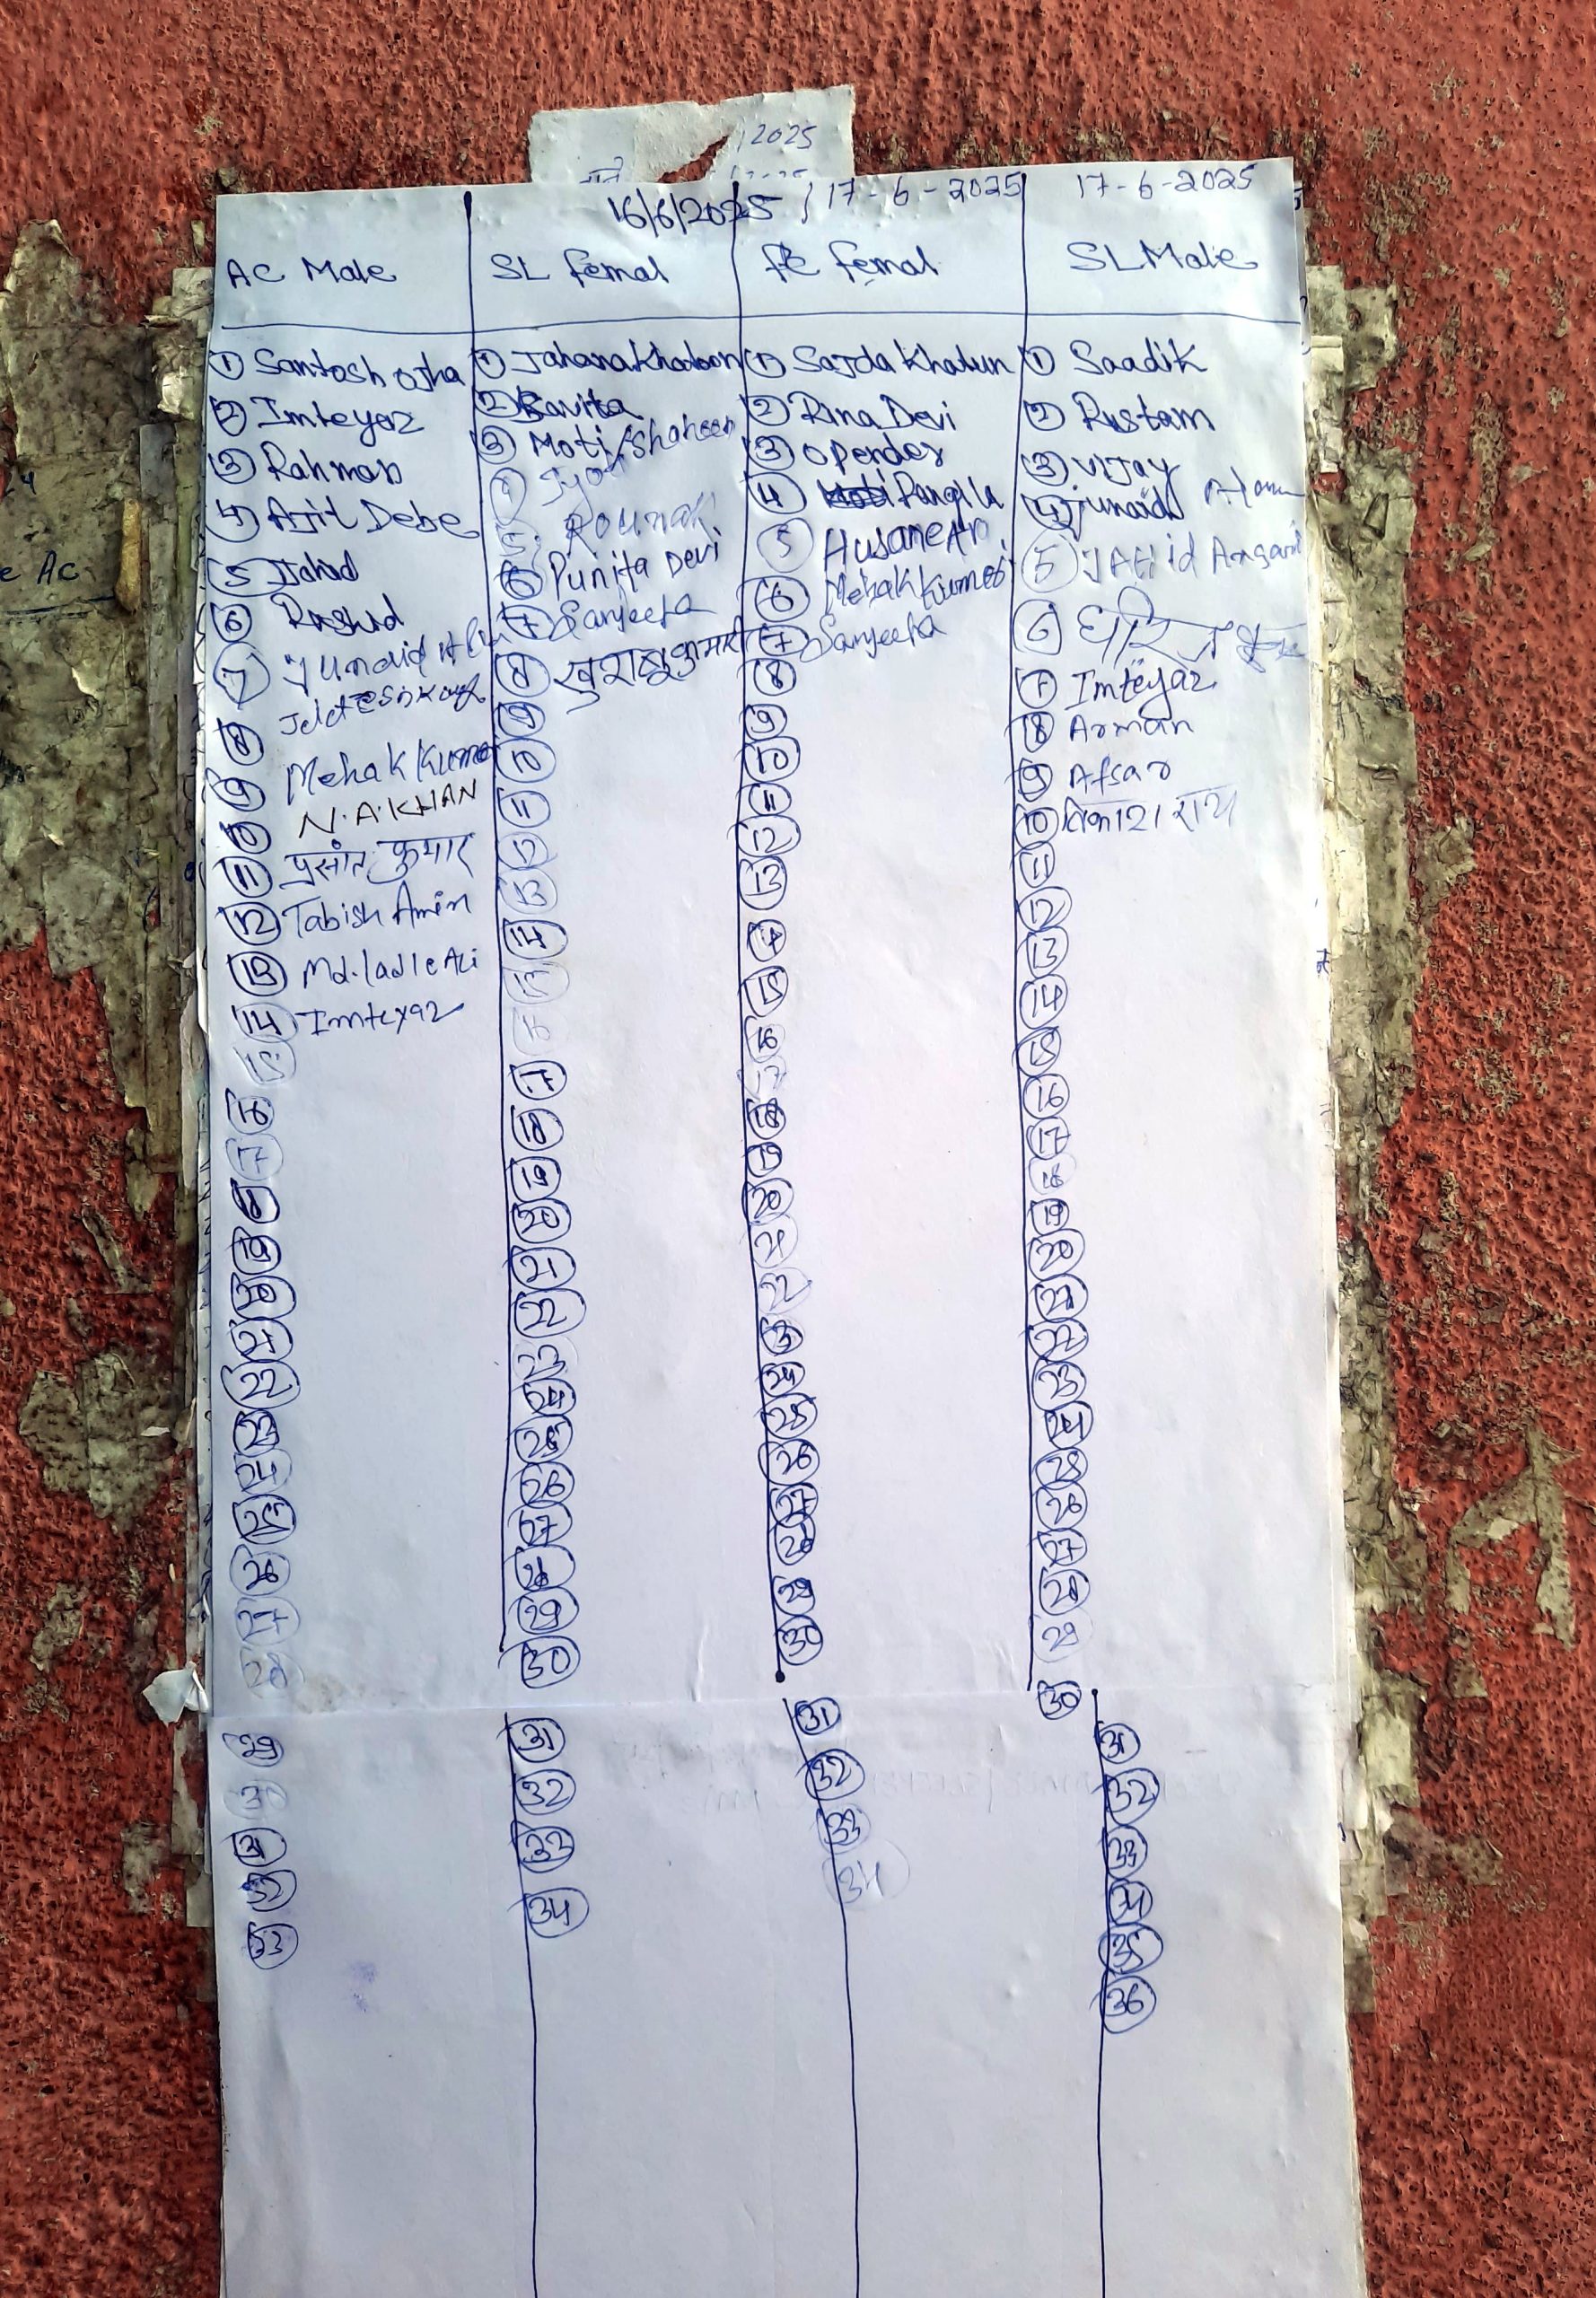 2025
16/6/2025 / 17-6-2025
17-6-2025
AC Male
① Santosh ojha
② Imteyaz
③ Rahman
④ Ajit Debe
⑤ Jahad
⑥ Rashid
⑦ Junaid
⑧
⑨ Mehak Kumar
⑩ N.A.KHAN
⑪ प्रसांत कुमार
⑫ Tabish Amin
⑬ Md. ladle Ali
⑭ Imteyaz
⑮
⑯
⑰
⑱
⑲
⑳
㉑
㉒
㉓
㉔
㉕
㉖
㉗
㉘
㉙
㉚
㉛
㉜
㉝
SL femal
① Jahana Khatoon
② Savita
③ Moti / Shaheen
④ Jyoti
⑤ Rounak
⑥ Punita Devi
⑦ Sanjeeta
⑧ खुशबू कुमारी
⑨
⑩
⑪
⑫
⑬
⑭
⑮
⑯
⑰
⑱
⑲
⑳
㉑
㉒
㉓
㉔
㉕
㉖
㉗
㉘
㉙
㉚
㉛
㉜
㉝
㉞
femal
① Sajda Khatun
② Rina Devi
③ Opender
④ Pangilla
⑤ Husane
⑥ Mehak Kumari
⑦ Sanjeeta
⑧
⑨
⑩
⑪
⑫
⑬
⑭
⑮
⑯
⑰
⑱
⑲
⑳
㉑
㉒
㉓
㉔
㉕
㉖
㉗
㉘
㉙
㉚
㉛
㉜
㉝
㉞
SL Male
① Saadik
② Rustam
③ Vijay
④ Junaid Alam
⑤
⑥
⑦ Imteyaz
⑧ Arman
⑨ Afsar
⑩ विकाश राय
⑪
⑫
⑬
⑭
⑮
⑯
⑰
⑱
⑲
⑳
㉑
㉒
㉓
㉔
㉕
㉖
㉗
㉘
㉙
㉚
㉛
㉜
㉝
㉞
㉟
㊱
e AC